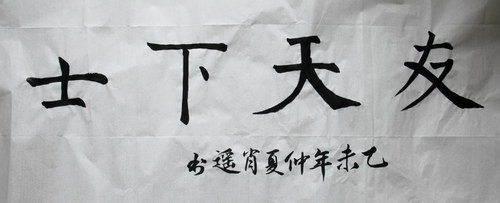 友天下士
乙未年仲夏肖遥书